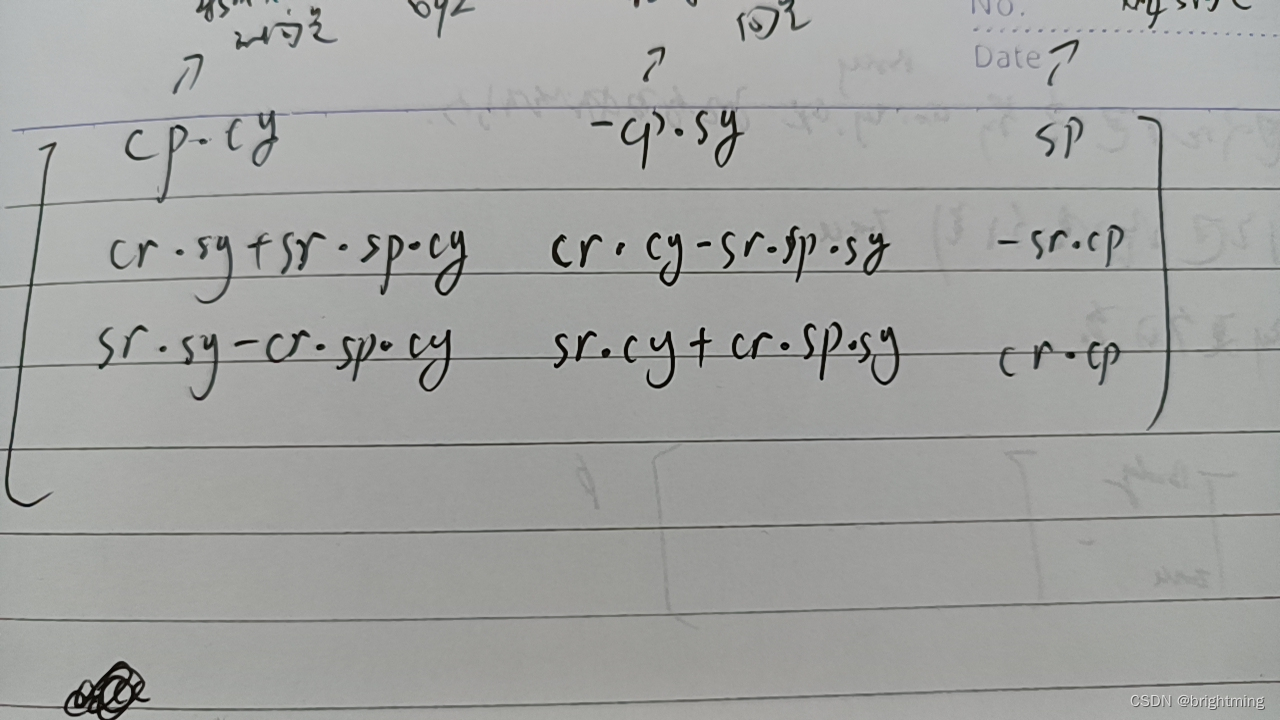 by2
No.
Date
cp·cy -cp·sy sp
cr·sy+sr·sp·cy cr·cy-sr·sp·sy -sr·cp
sr·sy-cr·sp·cy sr·cy+cr·sp·sy cr·cp
CSDN @brightming